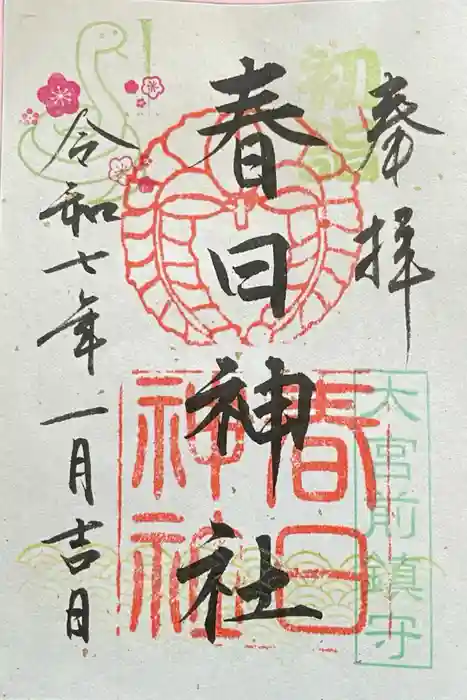 奉拝
初詣
春日神社
春日
神社
大宮前鎮守
令和七年一月吉日